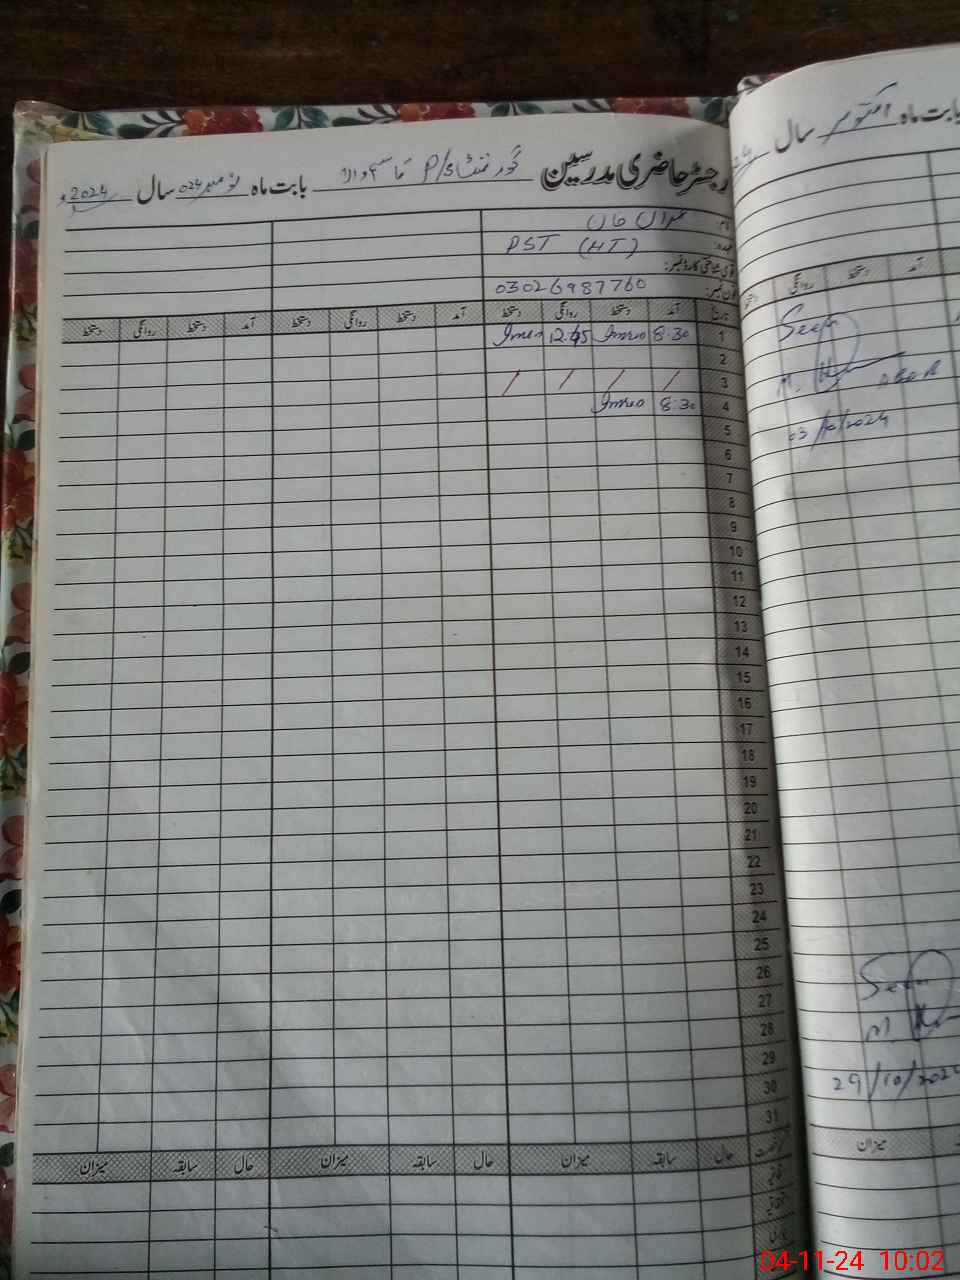 رجسٹر حاضری مدرسین گورنمنٹ P/S بابت ماہ نومبر 024 سال 2024ء
نام: عمران خان
عہدہ: PST (HT)
قومی شناختی کارڈ نمبر:
فون نمبر: 03026987760
تاریخ آمد دستخط روانگی دستخط آمد دستخط روانگی دستخط آمد دستخط روانگی دستخط
1 8:30 Imran 12:45 Imran
2
3 / / / /
4 8:30 Imran
5
6
7
8
9
10
11
12
13
14
15
16
17
18
19
20
21
22
23
24
25
26
27
28
29
30
31
رخصت حال سابقہ میزان حال سابقہ میزان حال سابقہ میزان
اتفاقیہ
بابت ماہ اکتوبر سال
آمد دستخط روانگی
Seen
03/10/2024
Seen
29/10/2024
میزان
04-11-24 10:02